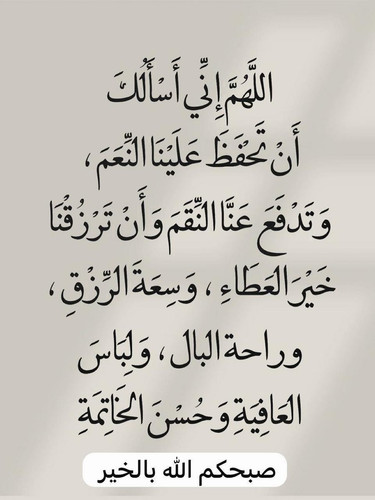 اللَّهُمَّ إِنِّي أَسْأَلُكَ
أَنْ تَحْفَظَ عَلَيْنَا النِّعَمَ ،
وَتَدْفَعَ عَنَّا النِّقَمَ وَأَنْ تَرْزُقْنَا
خَيْرَ العَطَاءِ ، وَسِعَةَ الرِّزْقِ ،
وراحة البال ، وَلِبَاسَ
العَافِيَةِ وَحُسْنَ الخَاتِمَةِ
صبحكم الله بالخير